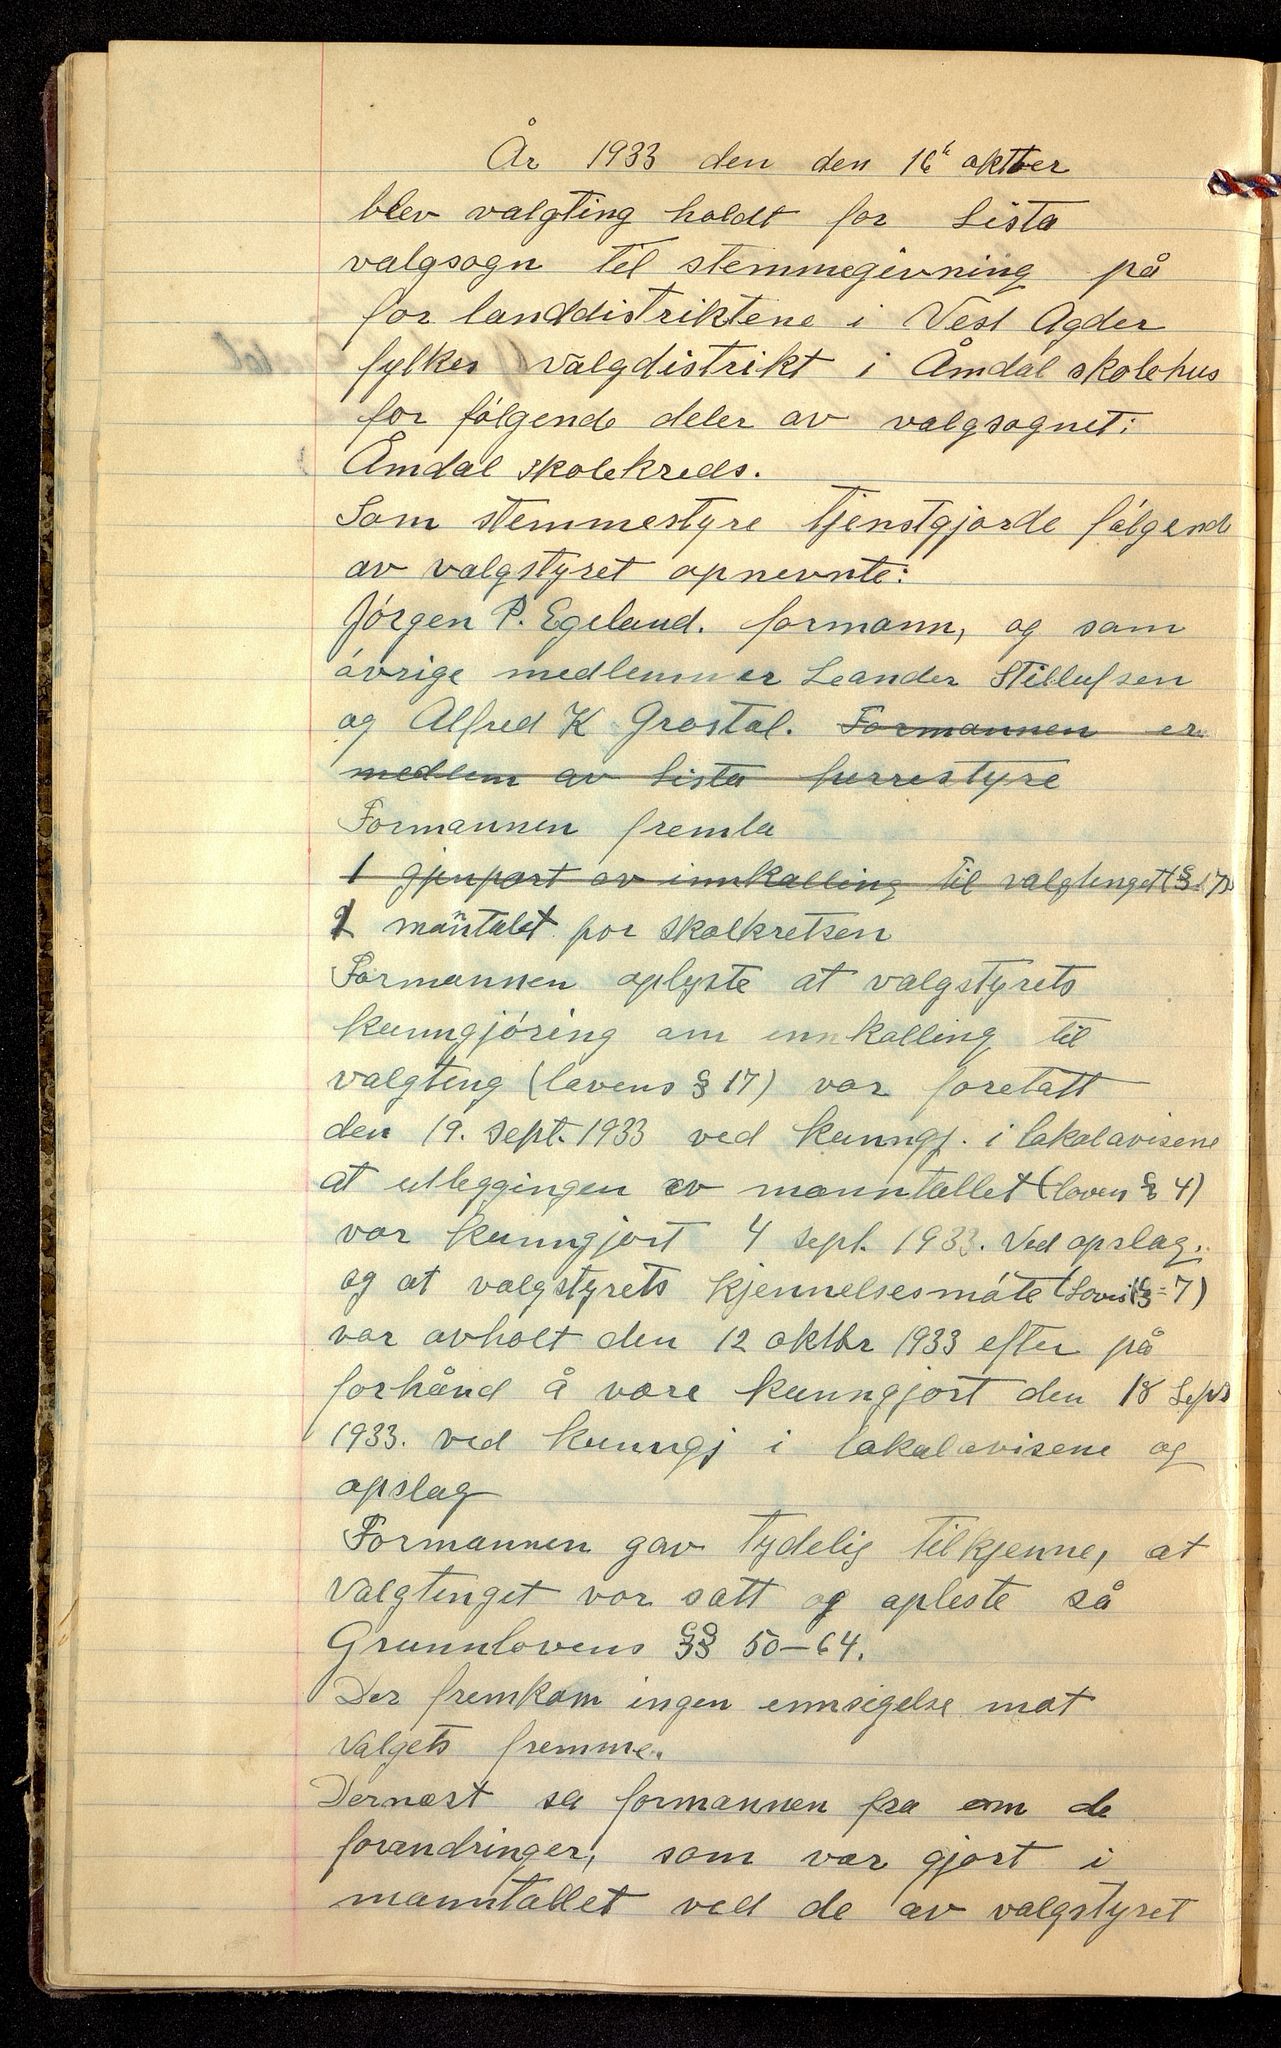 År 1933 den den 16ᵗ oktber
blev valgting holdt for Lista
valgsogn til stemmegivning på
for landdistriktene i Vest Agder
fylkes valgdistrikt i Åmdal skolehus
for følgende deler av valgsognet:
Åmdal skolekreds.
Som stemmestyre tjenstgjorde følgend
av valgstyret opnevnte:
Jørgen P. Egeland. formann, og som
øvrige medlemmer Leander Stillufsen
og Alfred K Grostøl. Formannen er
medlem av Lista herrestyre
Formannen fremla
1 gjenpart av innkalling til valgtinget (§ 17)
manntalet for skolkretsen
Formannen oplyste at valgstyrets
kunngjøring om innkalling til
valgting (lovens § 17) var foretatt
den 19. sept. 1933 ved kunngj. i lokalavisene
at utleggingen av manntallet (lovens § 4)
var kunngjort 4 sept. 1933. Ved opslag.
og at valgstyrets kjennelsesmøte (§ 7)
var avholt den 12 oktbr 1933 efter på
forhånd å være kunngjort den 18 Sept
1933. ved kunngj i lokalavisene og
opslag
Formannen gav tydelig tilkjenne, at
valgtinget var satt og opleste så
Grunnlovens §§ 50-64.
Der fremkom ingen innsigelse mot
valgets fremme.
Dernæst sa formannen fra om de
forandringer, som var gjort i
manntallet ved de av valgstyret